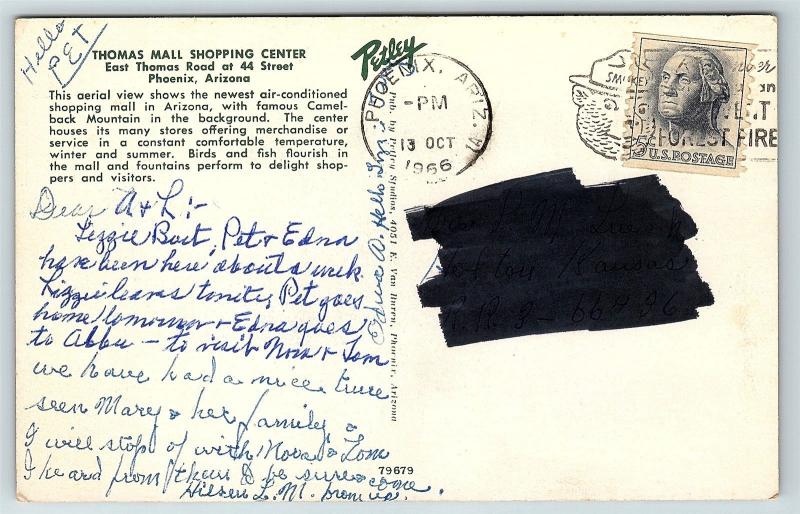 Hello
PET
THOMAS MALL SHOPPING CENTER
East Thomas Road at 44 Street
Phoenix, Arizona
This aerial view shows the newest air-conditioned
shopping mall in Arizona, with famous Camel-
back Mountain in the background. The center
houses its many stores offering merchandise or
service in a constant comfortable temperature,
winter and summer. Birds and fish flourish in
the mall and fountains perform to delight shop-
pers and visitors.
Dear A & L:-
Lizzie Bait, Pet & Edna
have been here about a week
Lizzie leaves tonite, Pet goes
home tomorrow & Edna goes
to Abbu - to visit Nova & Tom
we have had a nice time
seen Mary & her family &
I will stop of with Nova & Tom
I heard from them to be sure & come
L. M.
Edna A. Hello Lizzie
Petley
Pub. by Petley Studios, 4051 E. Van Buren, Phoenix, Arizona
79679
PHOENIX, ARIZ.
PM
13 OCT
1966
SMOKEY
FOREST FIRE
5¢ U.S. POSTAGE